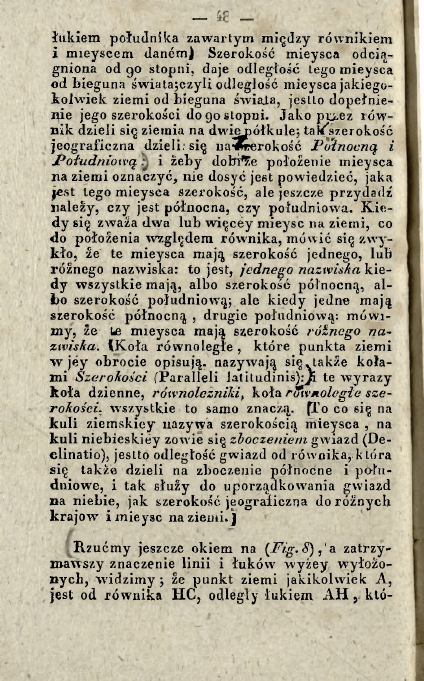 — 48 —
łukiem południka zawartym między równikiem
i mieyscem daném) Szerokość mieysca odcią-
gniona od 90 stopni, daje odległość tego mieysca
od bieguna świata; czyli odległość mieysca jakiego-
kolwiek ziemi od bieguna świata, jestto dopełnie-
nie jego szerokości do 90 stopni. Jako przez rów-
nik dzieli się ziemia na dwie półkule; tak szerokość
jeograficzna dzieli się na szerokość Północną i
Południową; i żeby dobrze położenie mieysca
na ziemi oznaczyć, nie dosyć jest powiedzieć, jaka
jest tego mieysca szerokość, ale jeszcze przydadź
należy, czy jest północna, czy południowa. Kie-
dy się zważa dwa lub więcéy mieysc na ziemi, co
do położenia względem równika, mówić się zwy-
kło, że te mieysca mają szerokość jednego, lub
różnego nazwiska: to jest, jednego nazwiska kie-
dy wszystkie mają, albo szerokość północną, al-
bo szerokość południową; ale kiedy jedne mają
szerokość północną, drugie południową: mówi-
my, że te mieysca mają szerokość różnego na-
zwiska. (Koła równoległe, które punkta ziemi
w jéy obrocie opisują, nazywają się także koła-
mi Szerokości (Paralleli latitudinis): i te wyrazy
koła dzienne, równoleżniki, koła równoległe sze-
rokości, wszystkie to samo znaczą. [To co się na
kuli ziemskiéy nazywa szerokością mieysca, na
kuli niebieskiéy zowie się zboczeniem gwiazd (De-
clinatio), jestto odległość gwiazd od równika, która
się także dzieli na zboczenie północne i połu-
dniowe, i tak służy do uporządkowania gwiazd
na niebie, jak szerokość jeograficzna do różnych
krajow i mieysc na ziemi.]
(Rzućmy jeszcze okiem na (Fig. 8), a zatrzy-
mawszy znaczenie linii i łuków wyżey wyłożo-
nych, widzimy; że punkt ziemi jakikolwiek A,
jest od równika HC, odległy łukiem AH, któ-